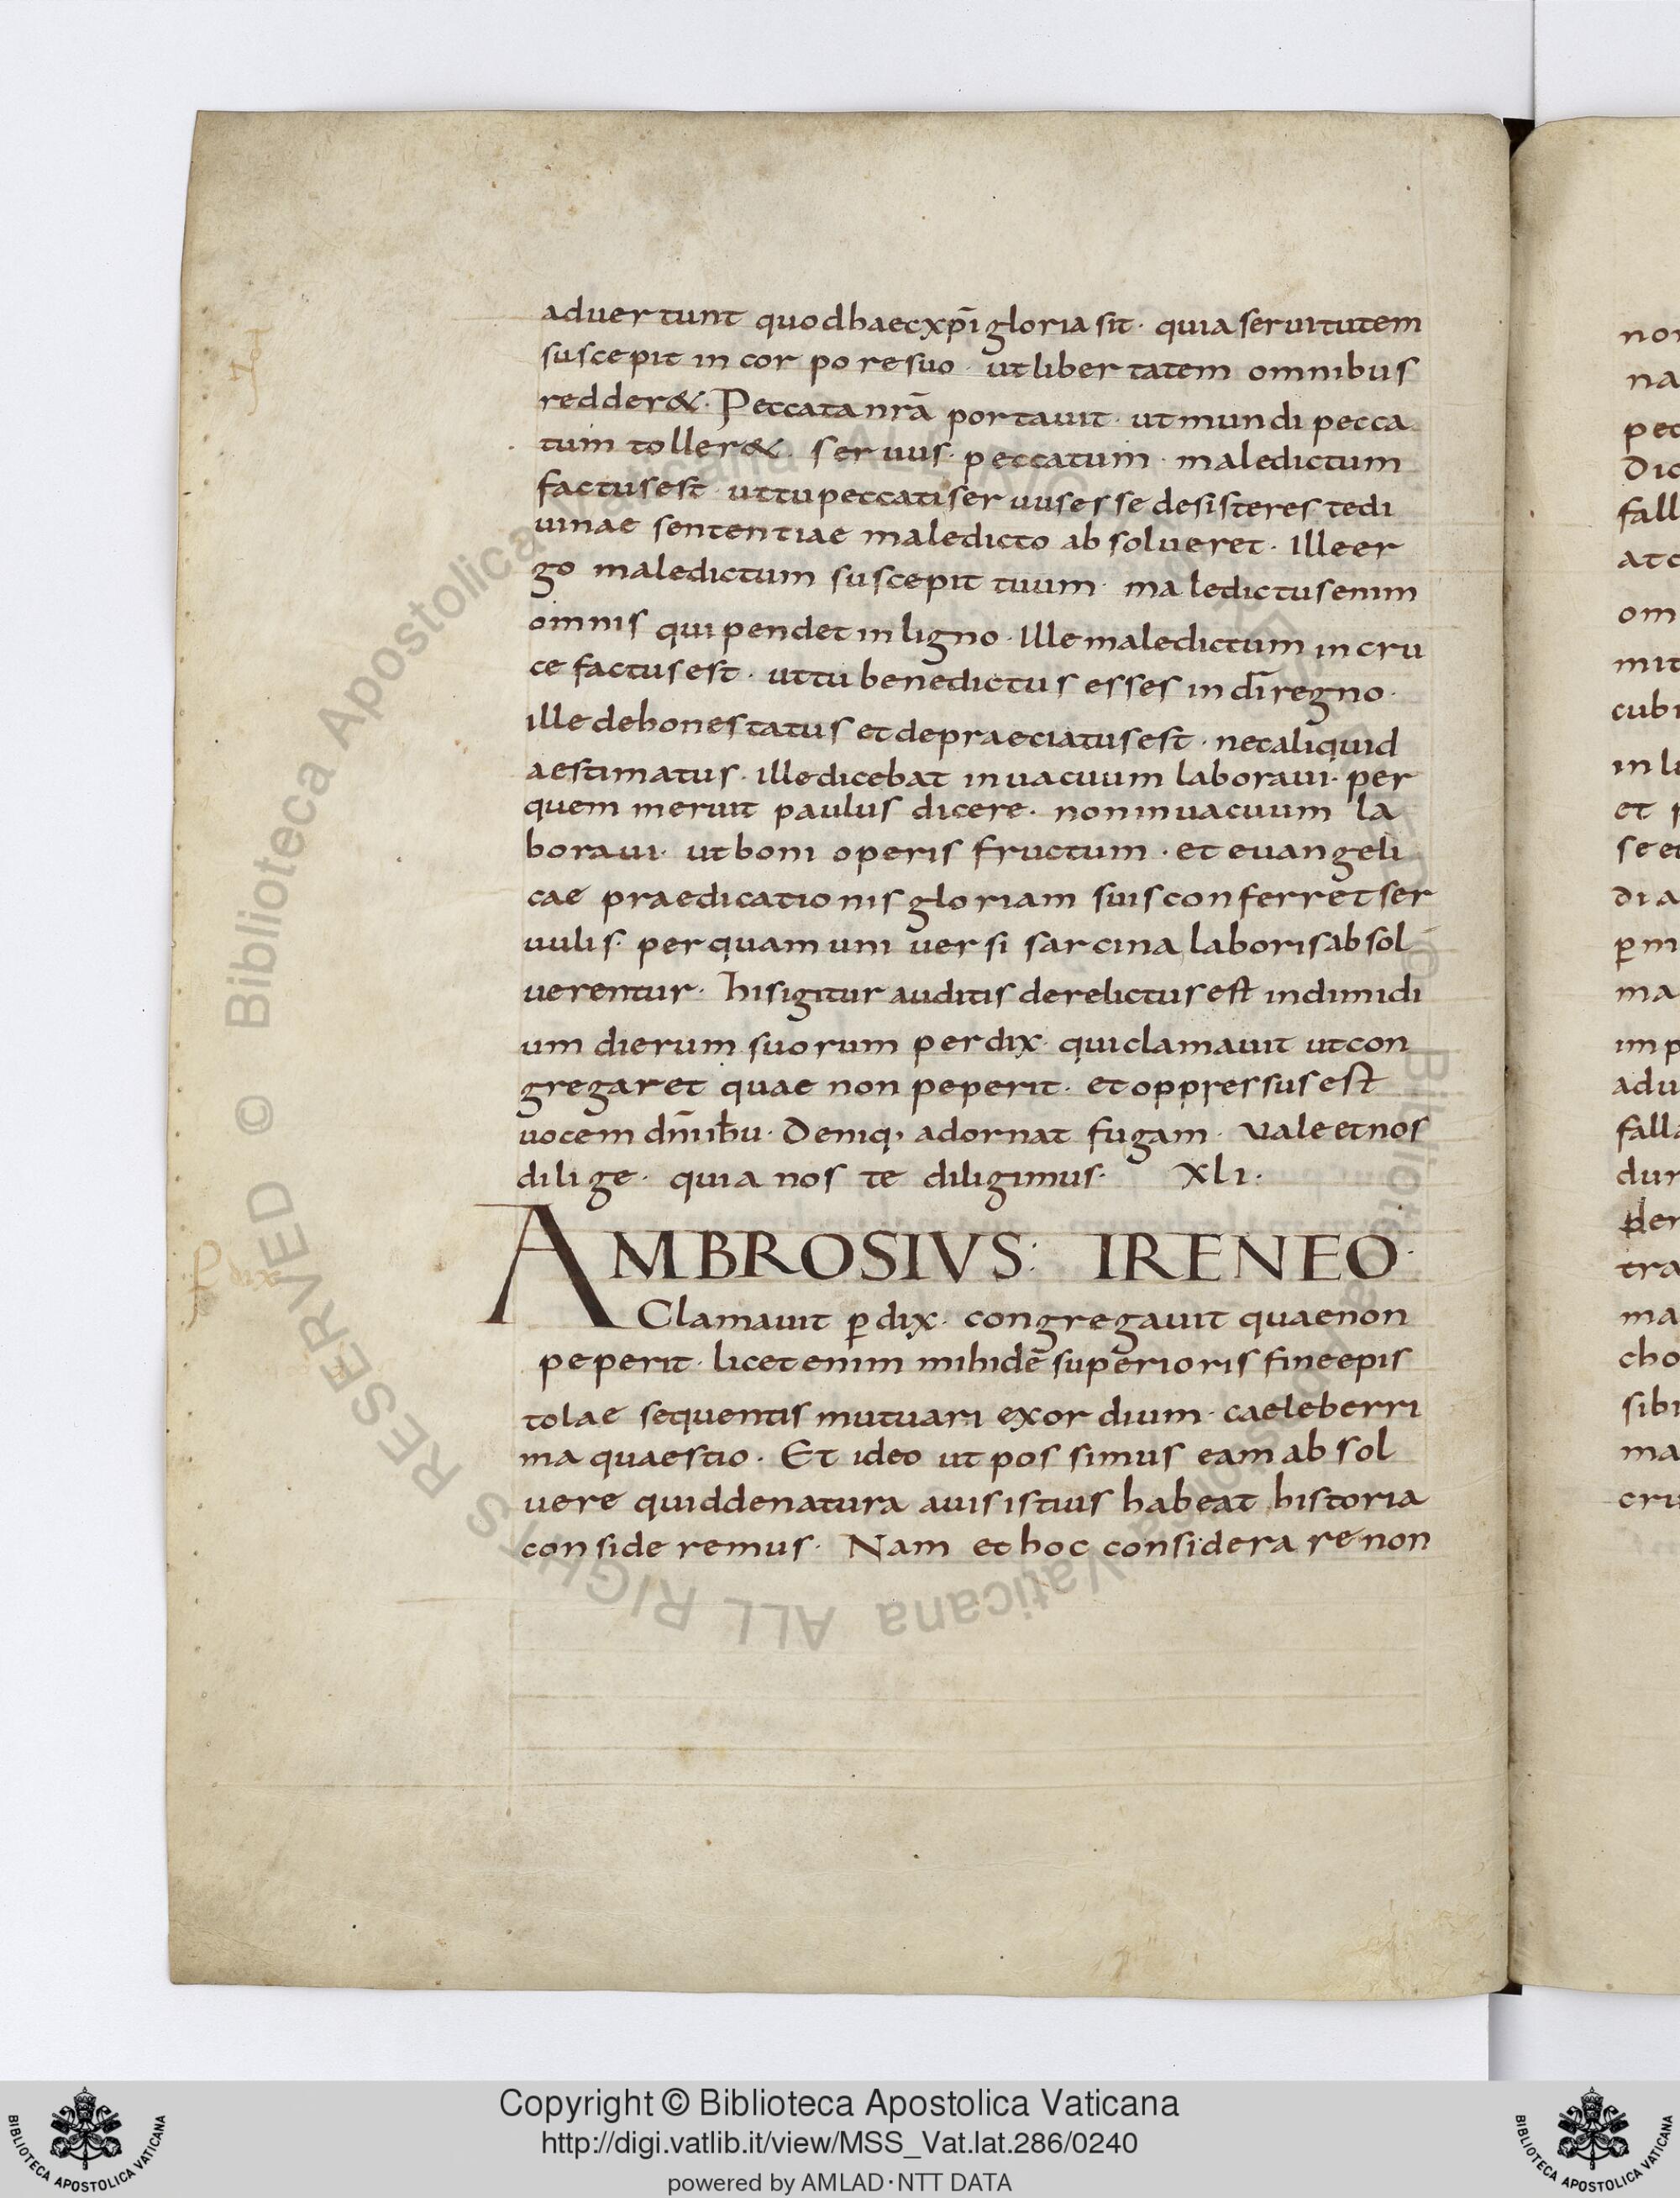 aduertunt quod haec xp̄i gloria sit · quia seruitutem
suscepit in corpore suo · ut libertatem omnibus
redder& · Peccata nr̄a portauit · ut mundi pecca
tum toller& · seruus · peccatum · maledictum
factus est · ut tu peccati seruus esse desisteres te di
uinae sententiae maledicto absolueret · Ille er
go maledictum suscepit tuum · maledictus enim
omnis qui pendet in ligno · Ille maledictum in cru
ce factus est · ut tu benedictus esses in dī regno ·
ille dehonestatus et depraeciatus est · nec aliquid
aestimatus · ille dicebat in uacuum laboraui · per
quem meruit paulus dicere · non in uacuum la
boraui · ut boni operis fructum · et euangeli
cae praedicationis gloriam suis conferret ser
uulis · per quam uniuersi sarcina laboris absol
uerentur · his igitur auditis derelictus est in dimidi
um dierum suorum perdix · qui clamauit ut con
gregaret quae non peperit · et oppressus est
uocem dn̄i ibu · Deniq; adornat fugam · Vale et nos
dilige · quia nos te diligimus · XLI ·
AMBROSIVS : IRENEO ·
Clamauit ꝑdix · congregauit quae non
peperit · licet enim mihi dē superioris fine epis
tolae sequentis mutuari exordium · caeleberri
ma quaestio · Et ideo ut possimus eam absol
uere quid de natura auis istius habeat historia
consideremus · Nam et hoc considerare non
non
na
pec
Dic
fall
at c
om
mit
cubi
in l
et
se et
di a
ꝑ m
ma
imp
adu
falla
dur
der
tra
ma
cho
sibi
ma
cru
© Biblioteca Apostolica Vaticana ALL RIGHTS RESERVED
Copyright © Biblioteca Apostolica Vaticana
http://digi.vatlib.it/view/MSS_Vat.lat.286/0240
powered by AMLAD·NTT DATA
BIBLIOTECA APOSTOLICA VATICANA
BIBLIOTECA APOSTOLICA VATICANA